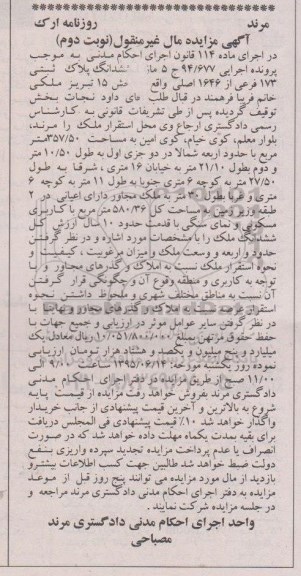 مرند روزنامه ارک
آگهی مزایده مال غیرمنقول(نوبت دوم)
در اجرای ماده ۱۱۴ قانون اجرای احکام مدنی به موجب
پرونده اجرایی ۹۴/۶۷۷ ج ۵ ششدانگ پلاک ثبتی
۱۷۳ فرعی از ۱۶۴۶ اصلی واقع بخش ۱۵ تبریز ملکی
خانم فریبا فرهمند در قبال طلب آقای داود نجات بخش
توقیف گردیده پس از طی تشریفات قانونی به کارشناس
رسمی دادگستری ارجاع وی محل استقرار ملک را مرند،
بلوار معلم، کوی خیام، کوی امین به مساحت ۳۵۷/۵۰متر
مربع با حدود اربعه شمالا در دو جزی اول به طول ۱۰/۵۰ متر
و دوم بطول ۲۱/۱۰ متر به خیابان ۱۶ متری، شرقا به طول
۲۷/۵۰ متر به کوچه ۶ متری جنوبا به طول ۱۱ متر به کوچه ۶
متری و غربا بطول متر به ملک مجاور دارای اعیانی در ۲
طبقه و زیرزمین به مساحت کل ۵۸۰/۳۶ متر مربع با کاربری
مسکونی و نمای سنگی با قدمت حدود ۱۰ سال ارزش کل
ششدانگ ملک را با مشخصات مورد اشاره و در نظر گرفتن
حدود و اربعه و وسعت ملک و میزان مرغوبیت، کیفیت و
نحوه استقرار ملک نسبت به املاک و گذرهای مجاور و با
توجه به کاربری و منطقه وقوع آن و چگونگی قرار گرفتن
آن نسبت به مناطق مختلف شهری و ملحوظ داشتن نحوه
استقرار
در نظر گرفتن سایر عوامل موثر در ارزیابی و جمیع جهات با
حفظ حقوق مرتهن بمبلغ ۱۰/۰۵۱/۸۰۰/۰۰۰ریال معادل یک
میلیارد و پنج میلیون و یکصد و هشتاد هزار تومان ارزیابی
نموده روز یکشنبه مورخه: ۱۳۹۵/۰۶/۱۴ ساعت ۰۹/۰۰ الی
۱۱/۰۰ صبح از طریق مزایده در دفتر اجرای احکام مدنی
دادگستری مرند بفروش خواهد رفت مزایده از قیمت پایه
شروع به بالاترین و آخرین قیمت پیشنهادی از جانب خریدار
واگذار خواهد شد ۱۰٪ قیمت پیشنهادی فی المجلس دریافت
برای بقیه بمدت یکماه مهلت داده خواهد شد که در صورت
انصراف یا عدم پرداخت مزایده تجدید سپرده واریزی بنفع
دولت ضبط خواهد شد طالبین جهت کسب اطلاعات بیشترو
بازدید از مال مورد مزایده می توانند پنج روز قبل از موعد
مزایده به دفتر اجرای احکام مدنی دادگستری مرند مراجعه و
در جلسه مزایده شرکت نمایند.
واحد اجرای احکام مدنی دادگستری مرند
مصباحی